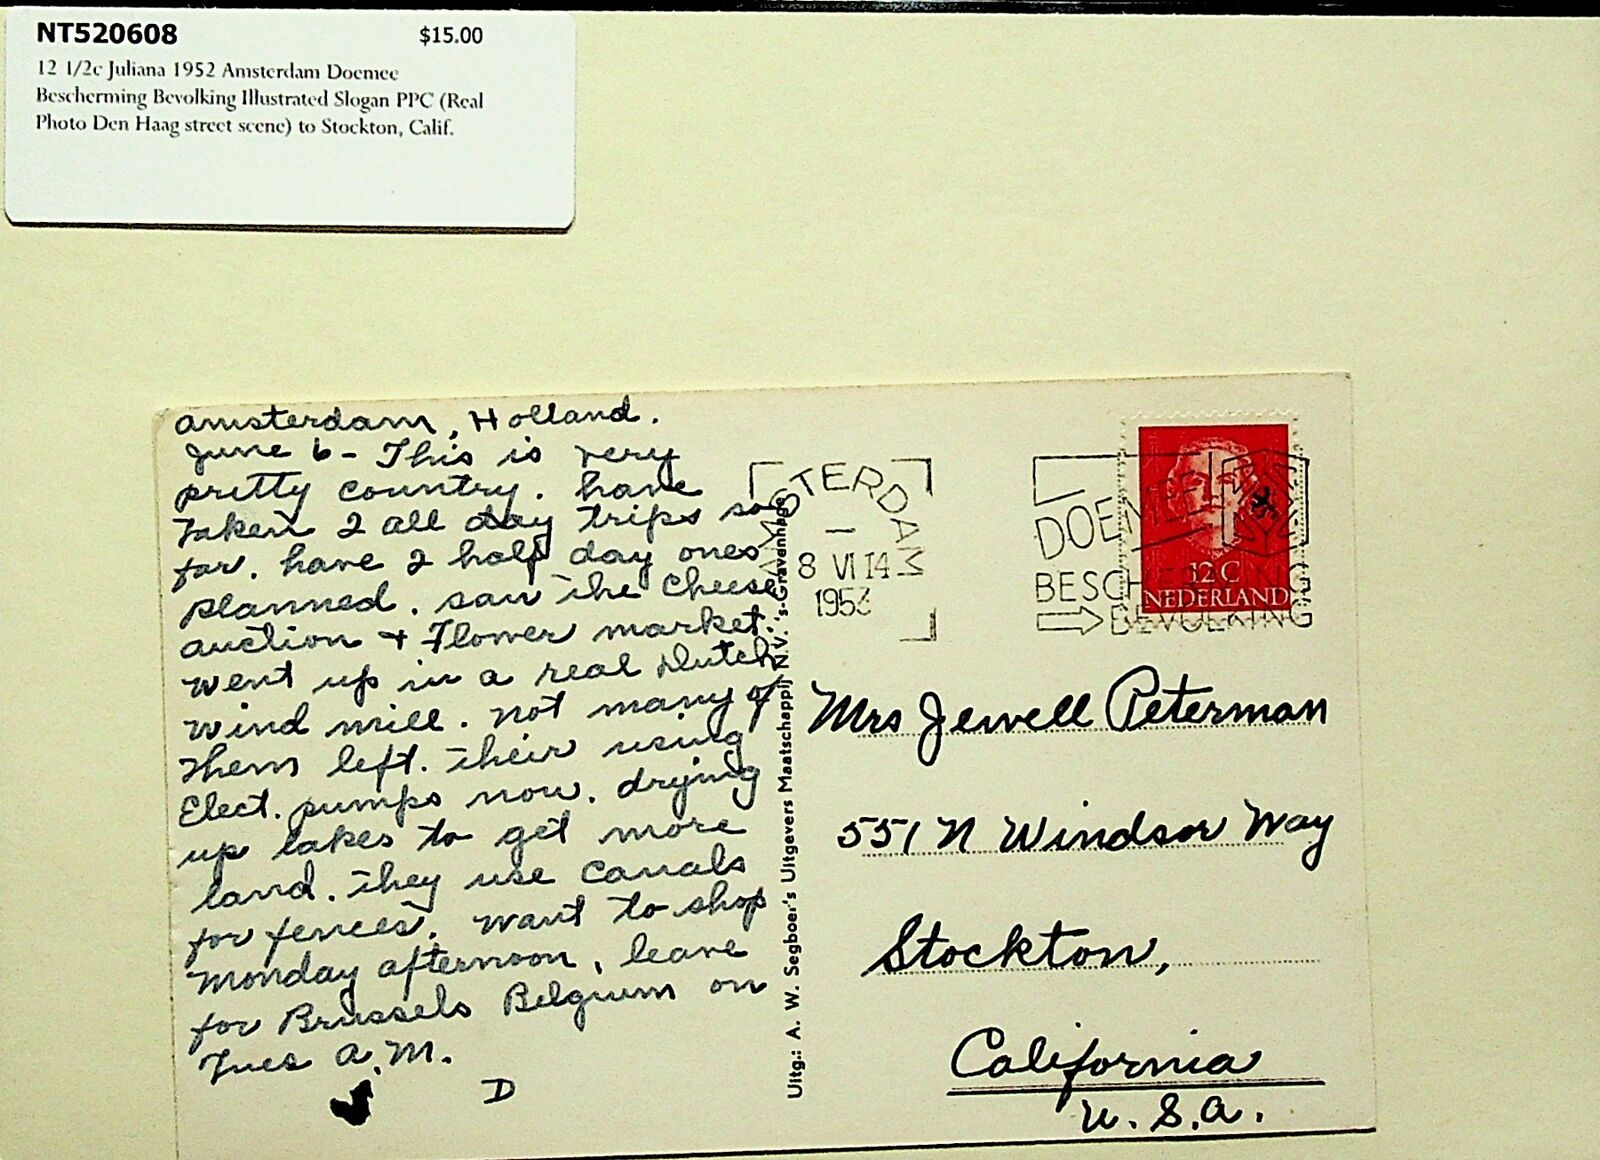 NT520608 $15.00
12 1/2c Juliana 1952 Amsterdam Doemee
Bescherming Bevolking Illustrated Slogan PPC (Real
Photo Den Haag street scene) to Stockton, Calif.
Amsterdam, Holland.
June 6 - This is very
pretty country. have
taken 2 all day trips so
far. have 2 half day ones
planned. saw the Cheese
auction & Flower market.
Went up in a real Dutch
wind mill. not many of
them left. their using
Elect. pumps now. drying
up lakes to get more
land. they use Canals
for fences. want to shop
Monday afternoon, leave
for Brussels Belgium on
Tues A.M.
D
Uitg.: A. W. Segboer's Uitgevers Maatschappij N.V. 's-Gravenhage
AMSTERDAM
1
8 VI 14
195
DOE MEE
BESCHERMING
BEVOLKING
12 C
NEDERLAND
Mrs Jewell Peterman
551 N Windsor Way
Stockton,
California
U.S.A.